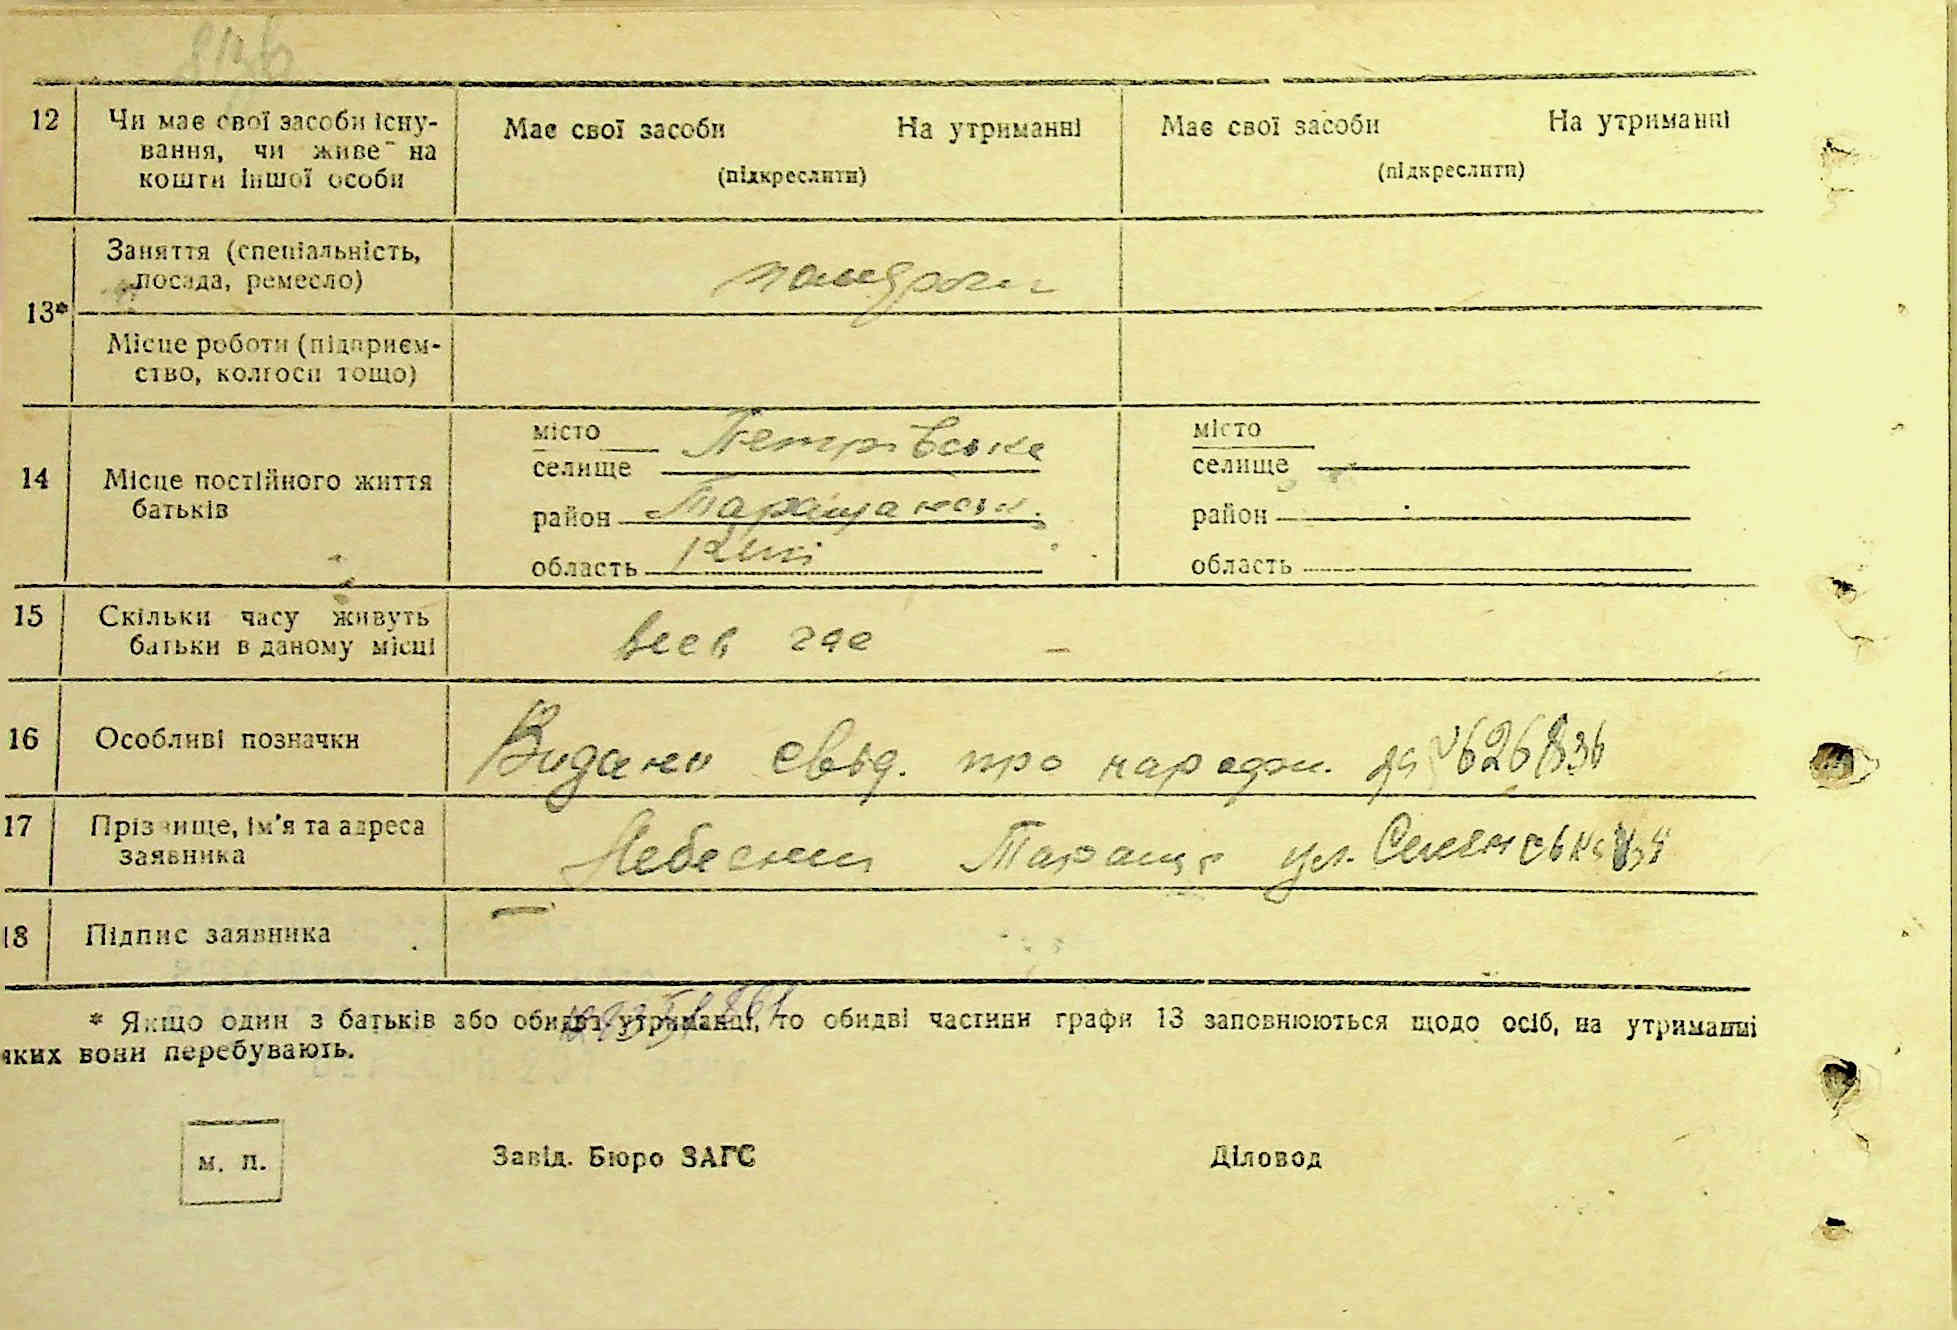 12
Чи має свої засоби існу-
вання, чи живе на
кошти іншої особи
Має свої засоби На утриманні
(підкреслити)
Має свої засоби На утриманні
(підкреслити)
13*
Заняття (спеціальність,
посада, ремесло)
Місце роботи (підприєм-
ство, колгосп тощо)
14
Місце постійного життя
батьків
місто
селище Петрівська
район Таращанськ.
область Київ
місто
селище
район
область
15
Скільки часу живуть
батьки в даному місці
весь час
16
Особливі позначки
Видано свід. про народж. 626836
17
Прізвище, ім'я та адреса
заявника
Небесний Тараща ул. Селянська
18
Підпис заявника
* Якщо один з батьків або обидві утриманці, то обидві частини графи 13 заповнюються щодо осіб, на утриманні
яких вони перебувають.
м. п.
Завід. Бюро ЗАГС
Діловод